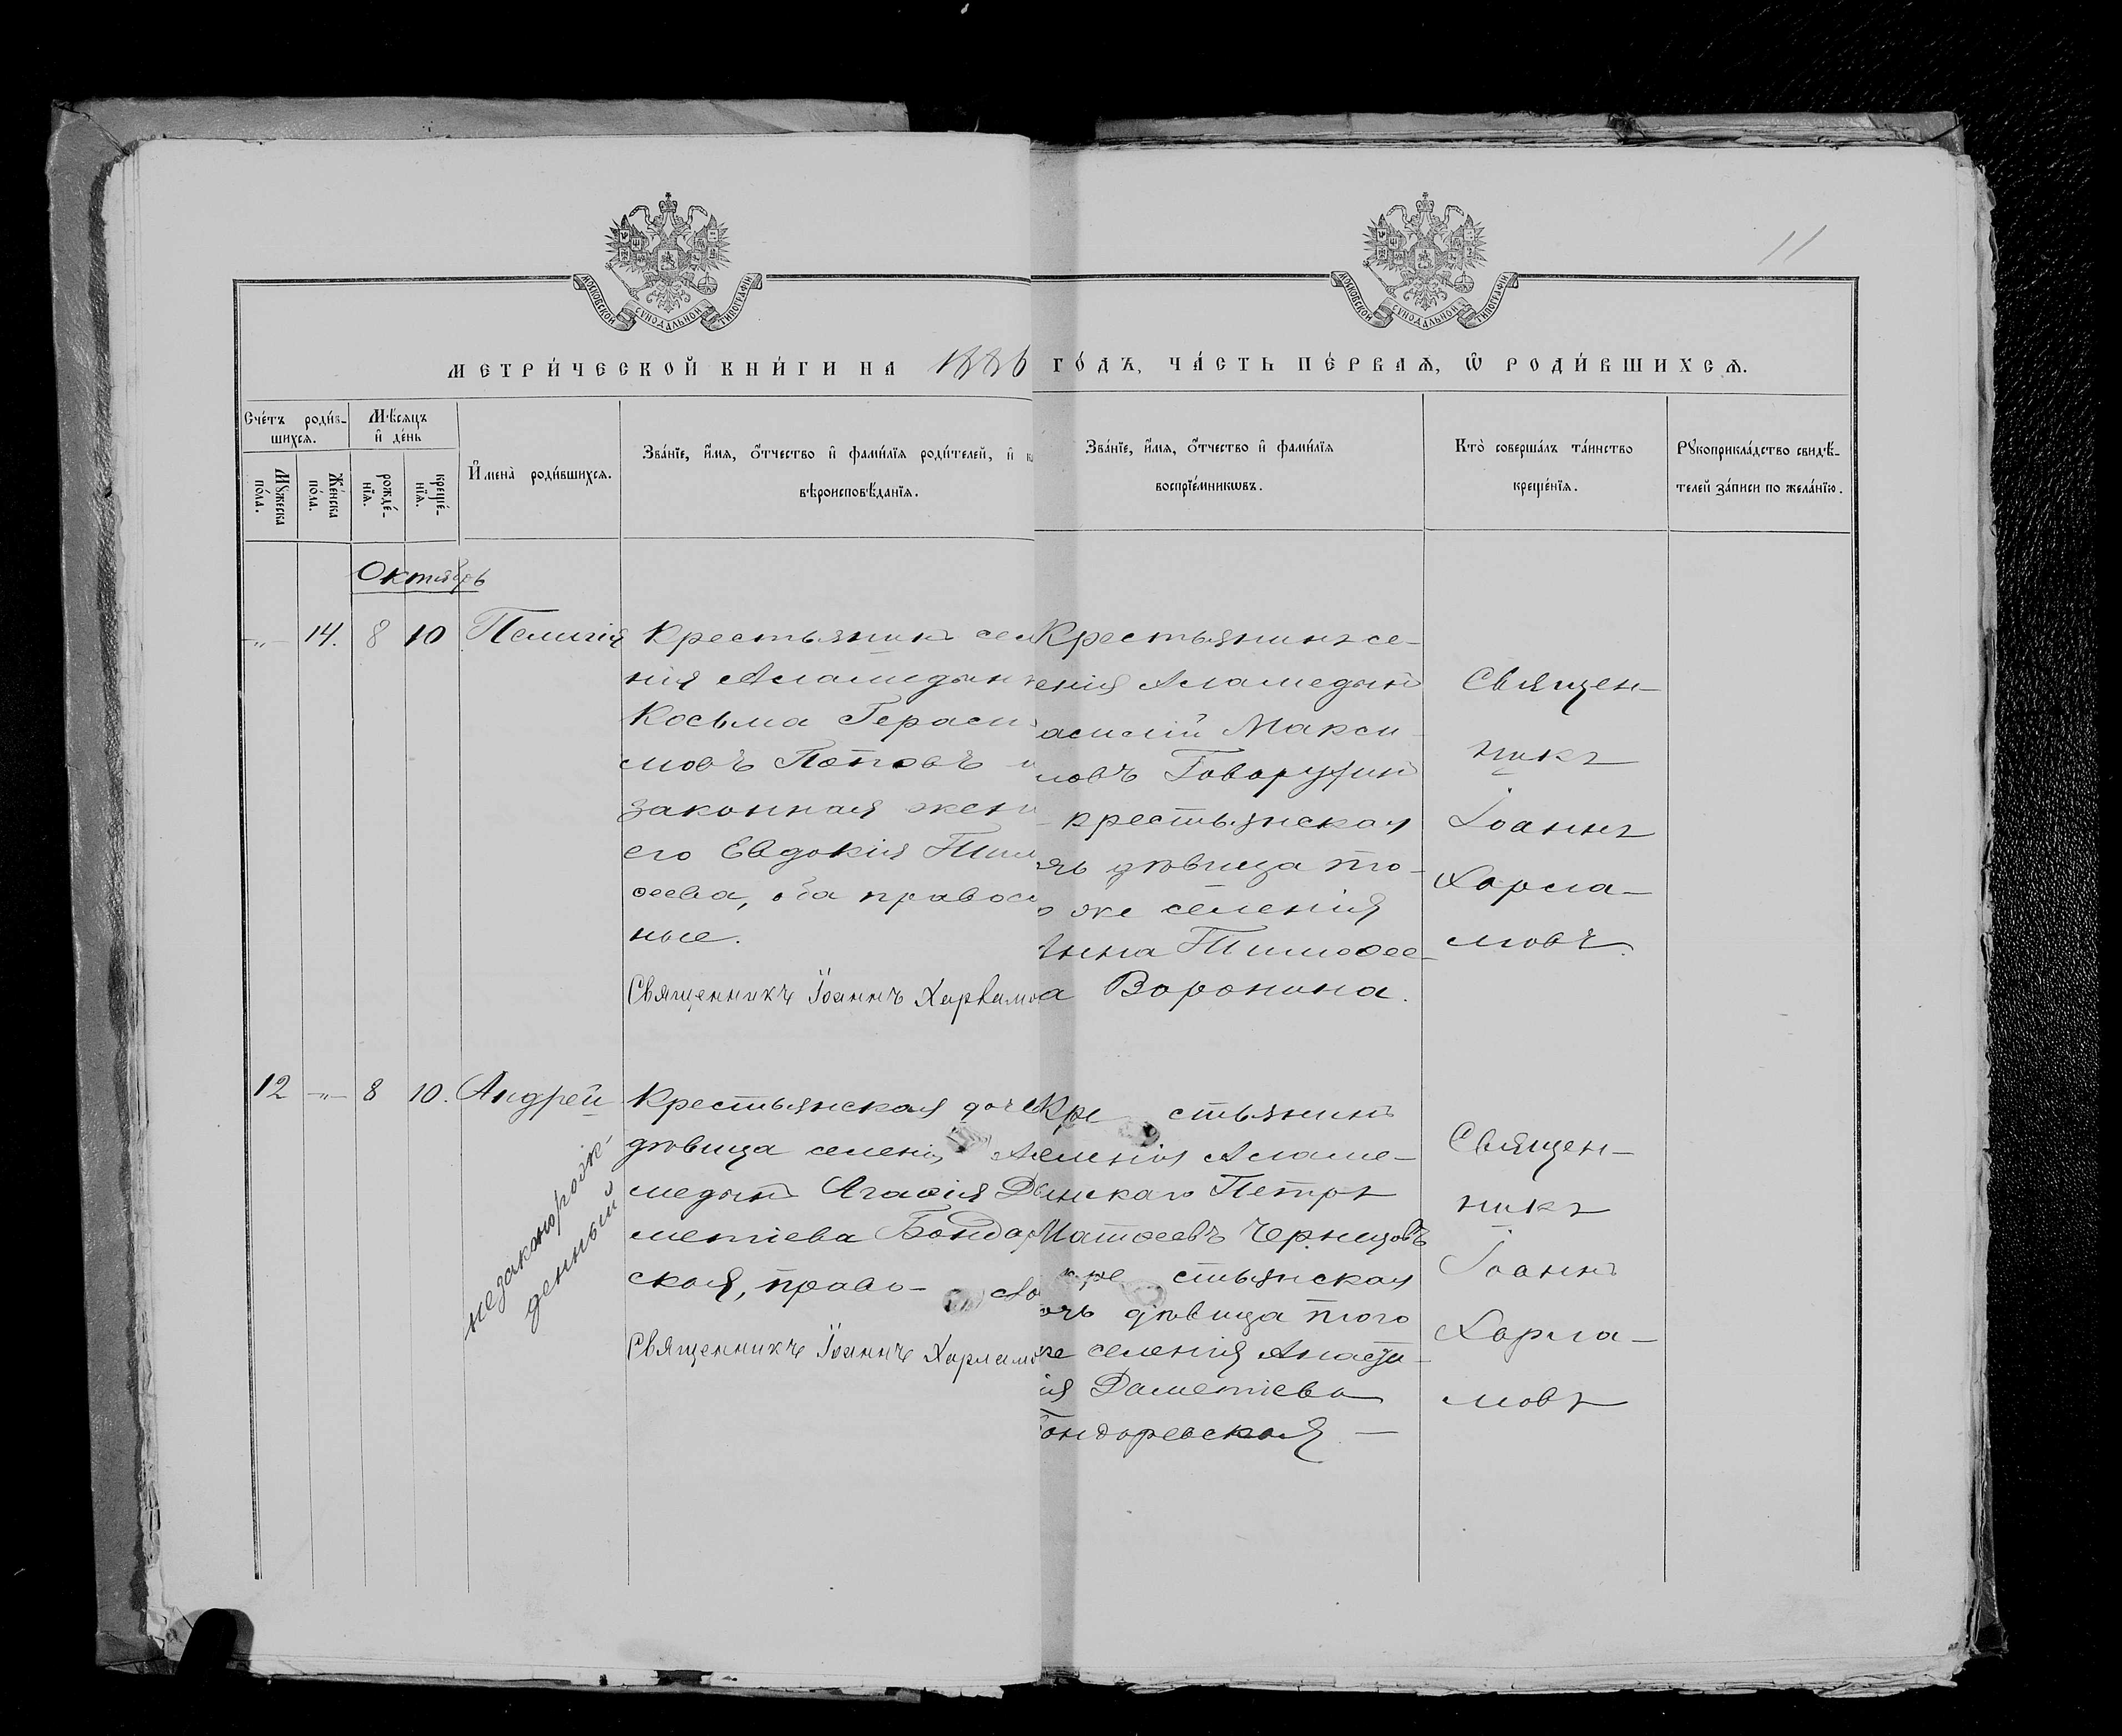 МОСКОВСКОЙ СѴНОДАЛЬНОЙ ТИПОГРАФІИ
МОСКОВСКОЙ СѴНОДАЛЬНОЙ ТИПОГРАФІИ
11
МЕТРИ́ЧЕСКОЙ КНИ́ГИ НА 1886 ГО́ДЪ, ЧА́СТЬ ПЕ́РВАѦ, Ѡ РОДИ́ВШИХСѦ.
Сче́тъ роди́в-
шихсѧ.
Мѣ́сѧцъ
и҆ де́нь
Мꙋжеска
по́ла.
Же́нска
по́ла.
рожде́-
нїѧ.
креще́-
нїѧ.
И҆мена̀ роди́вшихсѧ.
Зва́нїе, и҆́мѧ, ѻ҆́тчество и҆ фами́лїѧ роди́телей, и҆
вѣроисповѣ́данїѧ.
Зва́нїе, и҆́мѧ, ѻ҆́тчество и҆ фами́лїѧ
воспрїе́мникѡвъ.
Кто̀ соверша́лъ та́инство
креще́нїѧ.
Рꙋкоприкла́дство свидѣ́-
телей за́писи по жела́нїю.
Октябрь
-"- 14. 8 10 Пелагія
Крестьянинъ сел
нія Аламедын
Косьма Гераси
мовъ Поповъ и
законная жен
его Евдокія Тим
ѳеева, оба правос
ные.
Священникъ Іоаннъ Харламо
Крестьянинъ се-
енія Аламедынъ
асилій Макси-
мовъ
крестьянская
чь дѣвица то-
о же селенія
Анна Тимоѳее-
а Воронина.
Священ-
никъ
Іоаннъ
Харла-
мовъ.
12 -"- 8 10. Андрей
незаконорож-
денный
Крестьянская доче
дѣвица селенія Ал
медынъ Агаѳія До
метіева Бондар
ская, право- сл
Священникъ Іоаннъ Харламо
Кре стьянинъ
еленія Аламе-
динскаго Петръ
Матѳеевъ Чернцовъ
кре стьянская
очь дѣвица того
же селенія Анаста-
ія Даметіева
Бондаревская —
Священ-
никъ
Іоаннъ
Харла-
мовъ